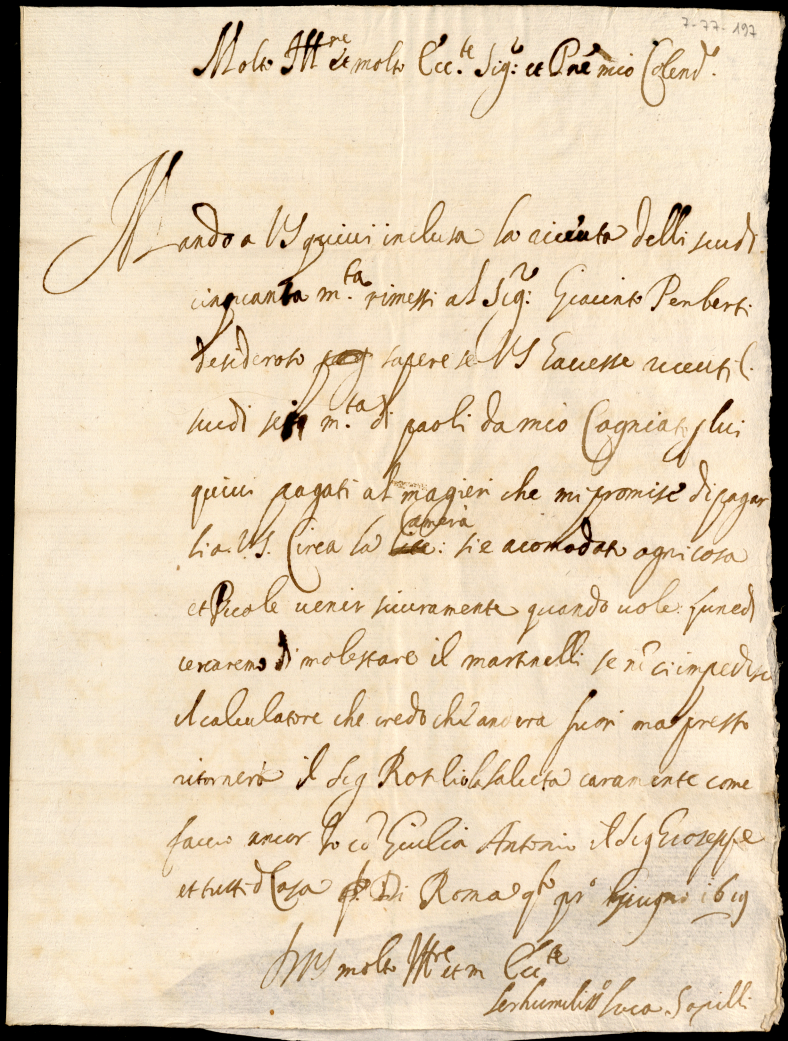 7-77-197
Molto Ill.re et molto Ecc.te Sig.r et P.ne mio Colend.o
Mando a VS quiui inclusa la riceuta delli scudi
cinquanta m.ta rimessi al Sig.r Giacinto Penberti
desideroso sapere se VS hauesse riceuti li
scudi sei m.ta di paoli da mio Cogniato p lui
quiui pagati al magieri che mi promise di pagar
li a VS. Circa la Camera: si e acomodato ogni cosa
et uenir sicuramente quando uole: lunedi
cercaremo di molestare il martinelli se nō ci impedisce
il calculatore che credo che andera fuori ma presto
ritornerà il Sig Rotilio la saluta caramente come
faccio ancor io cō Giulia Antonio il Sig Gioseppe
et tutti d Casa Di Roma q.to p.o Giugno 1619
Di VS molto Ill.re et m Ecc.te
Ser humiliss.o Luca Sapilli